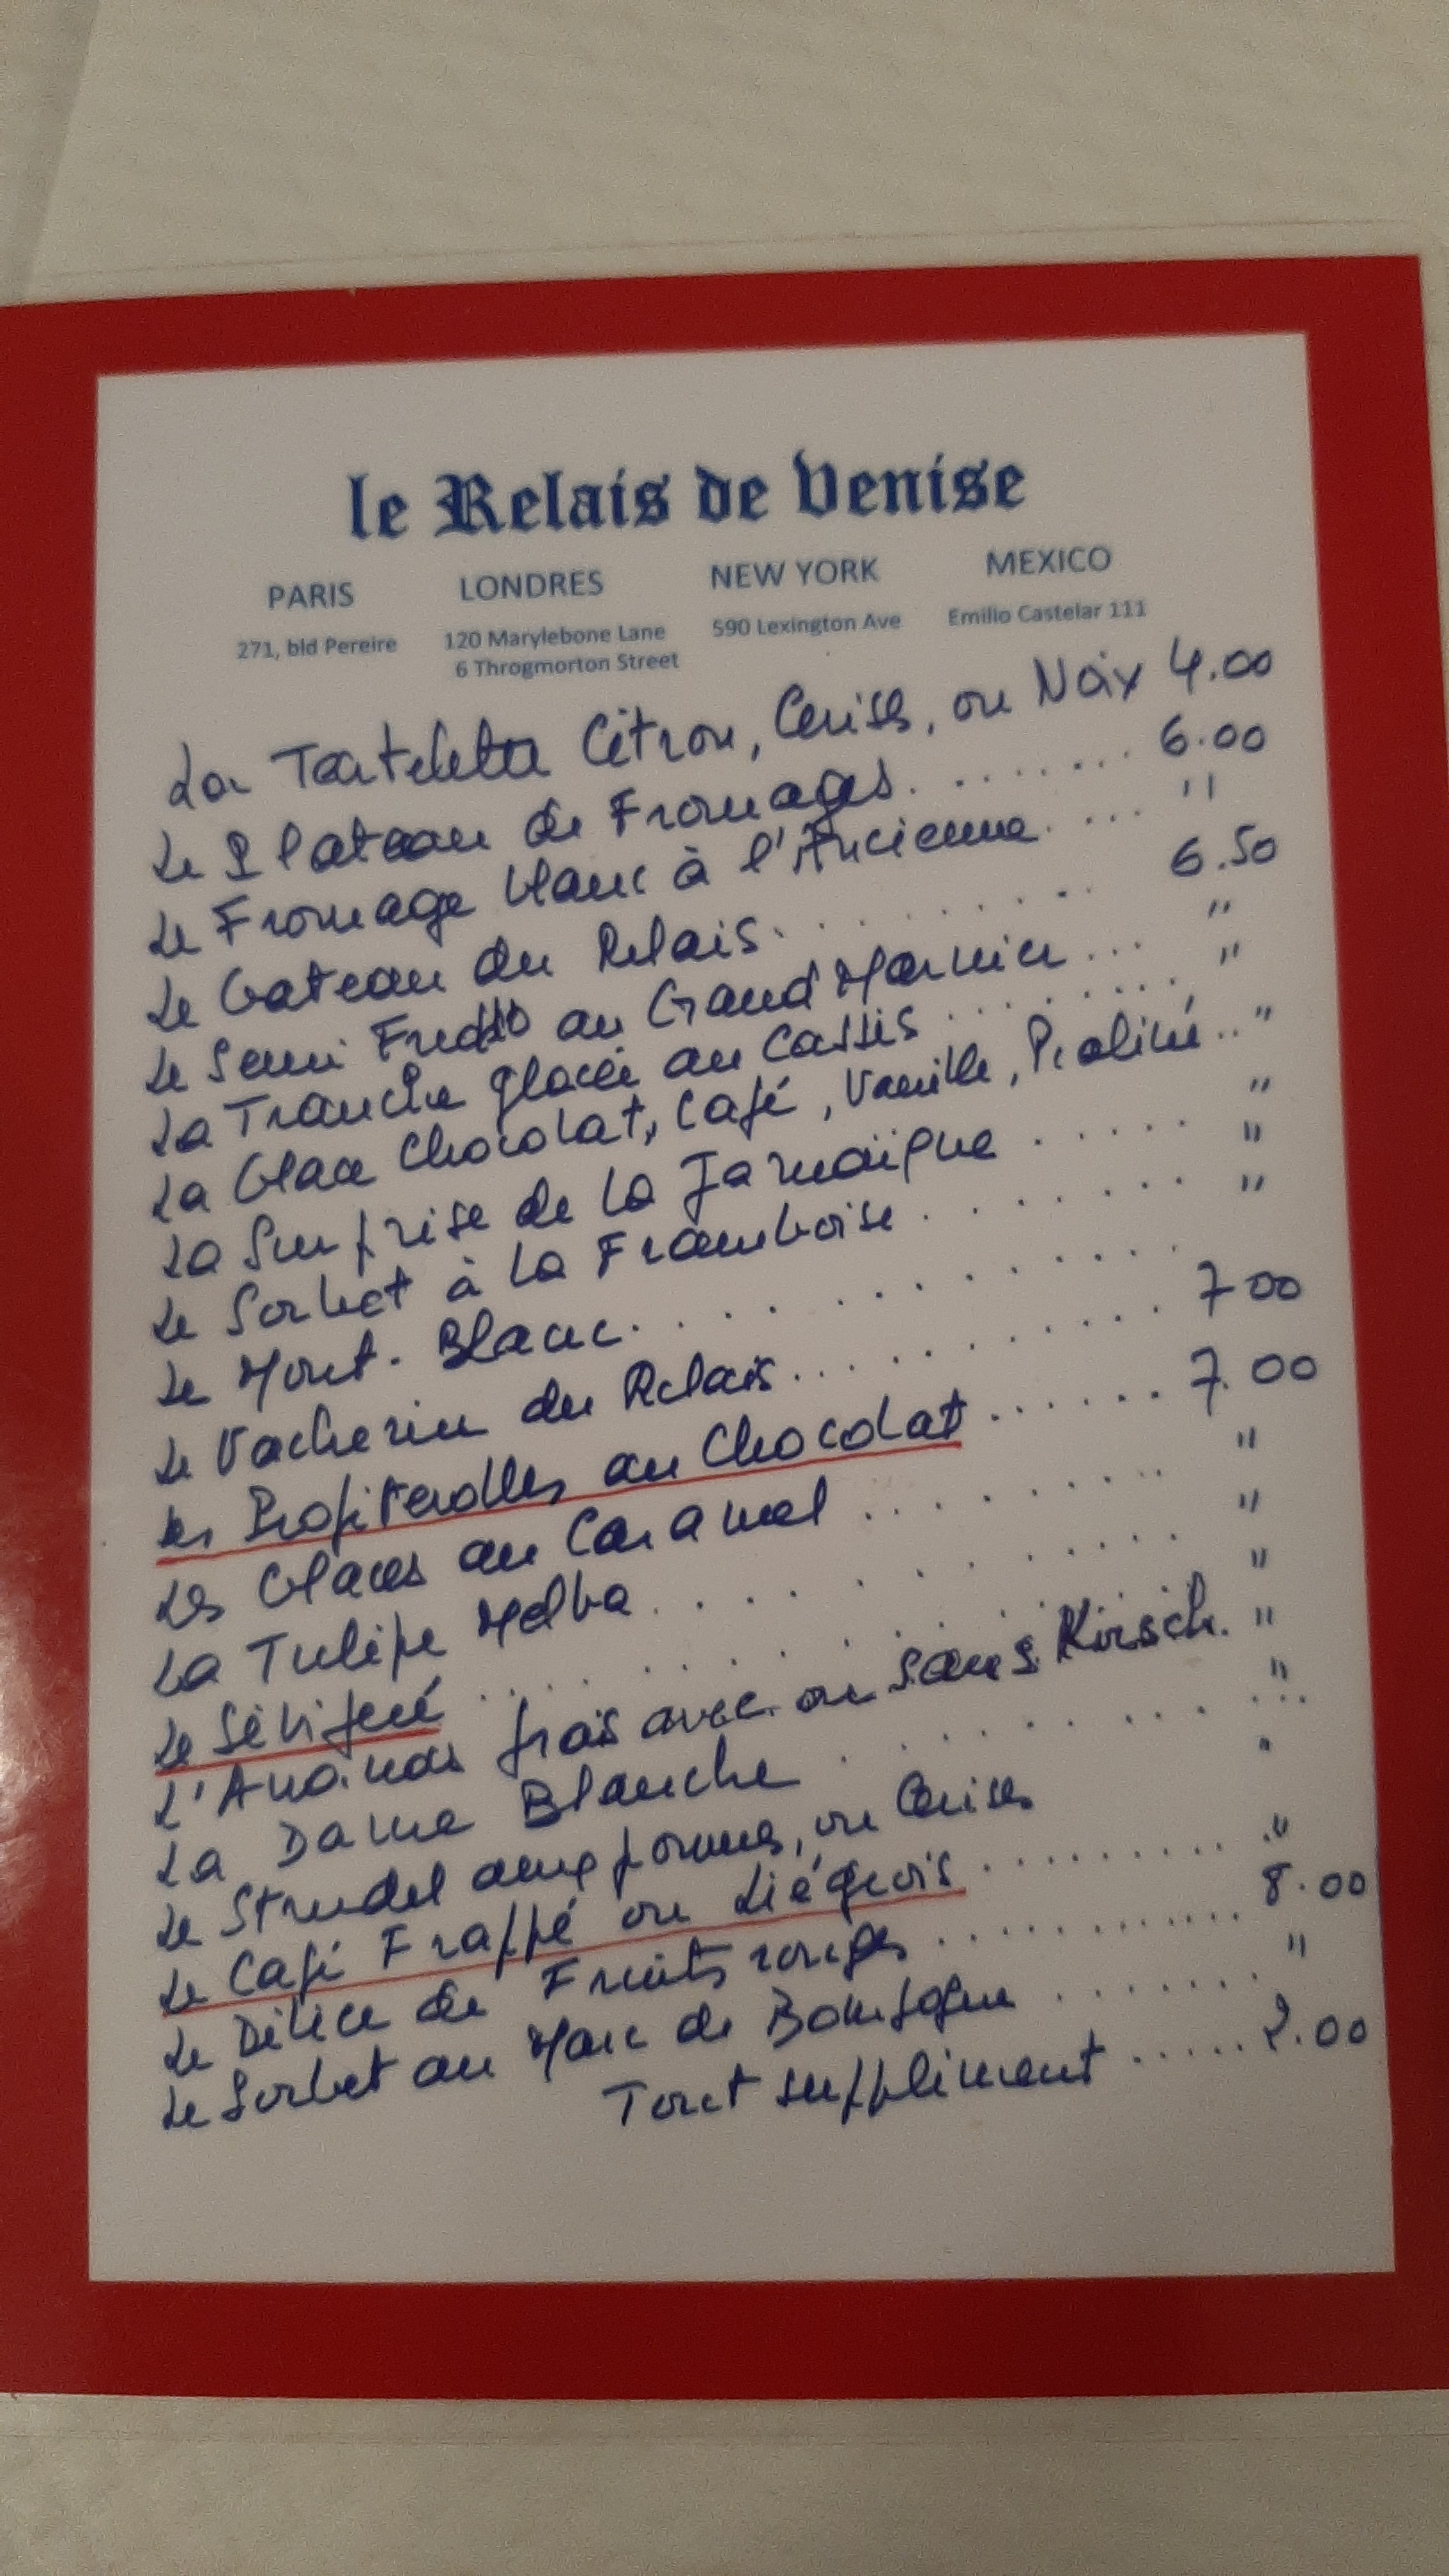 le Relais de Venise
PARIS LONDRES NEW YORK MEXICO
271, bld Pereire 120 Marylebone Lane 590 Lexington Ave Emilio Castelar 111
6 Throgmorton Street
La Tartelette Citron, Cerises, ou Noix 4.00
Le Plateau de Fromages. ....... 6.00
Le Fromage blanc à l'Ancienne .... "
Le Gateau du Relais. ......... 6.50
Le Semi Freddo au Grand Marnier ... "
La Tranche glacée au Cassis ........ "
La Glace Chocolat, Café, Vanille, Praliné .. "
La Surprise de la Jamaïque ..... "
Le Sorbet à la Framboise ........ "
Le Mont-Blanc. ........... "
Le Vacherin du Relais .......... 7 00
Les Profiterolles au Chocolat ...... 7.00
Les Glaces au Caramel ......... "
La Tulipe Melba ........... "
Le Sévigné ............. "
L'Ananas frais avec ou sans Kirsch. "
La Dame Blanche .......... "
Le Strudel aux pommes, ou Cerises "
Le Café Frappé ou Liégeois ......... "
Le Délice de Fruits rouges ............ 8.00
Le Sorbet au Marc de Bourgogne ....... "
Tout supplément ..... 2.00